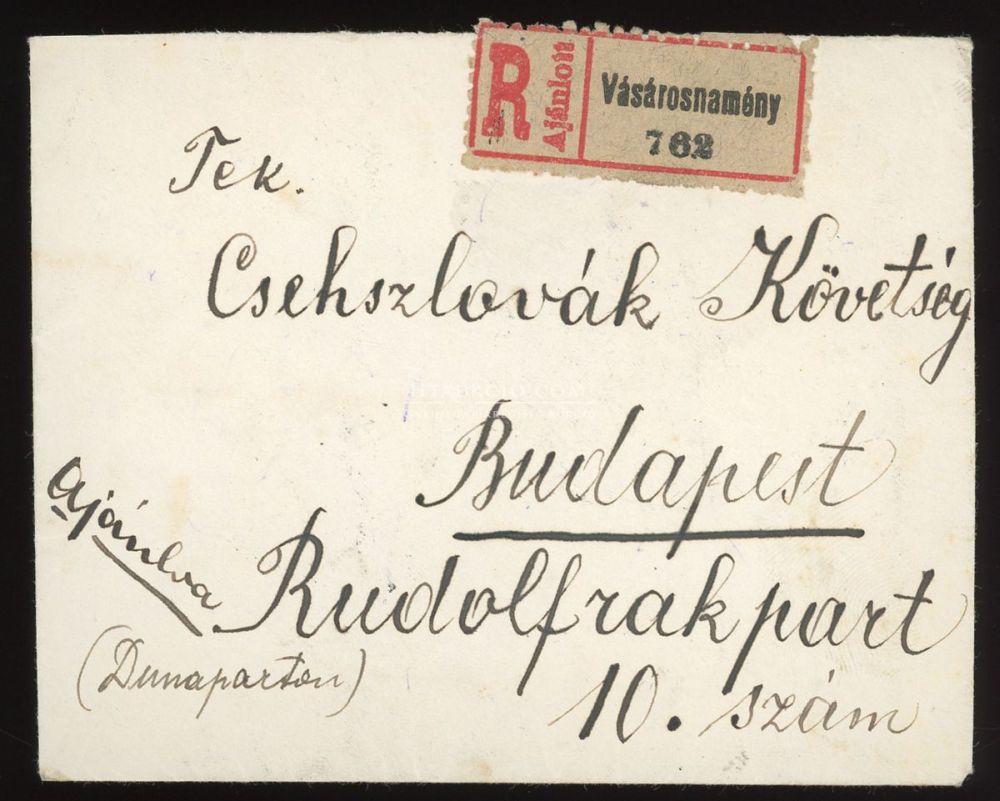 R Ajánlott
Vásárosnamény
762
Tek.
Csehszlovák Követség
Budapest
Ajánlva
Rudolfrakpart
(Dunaparton)
10. szám